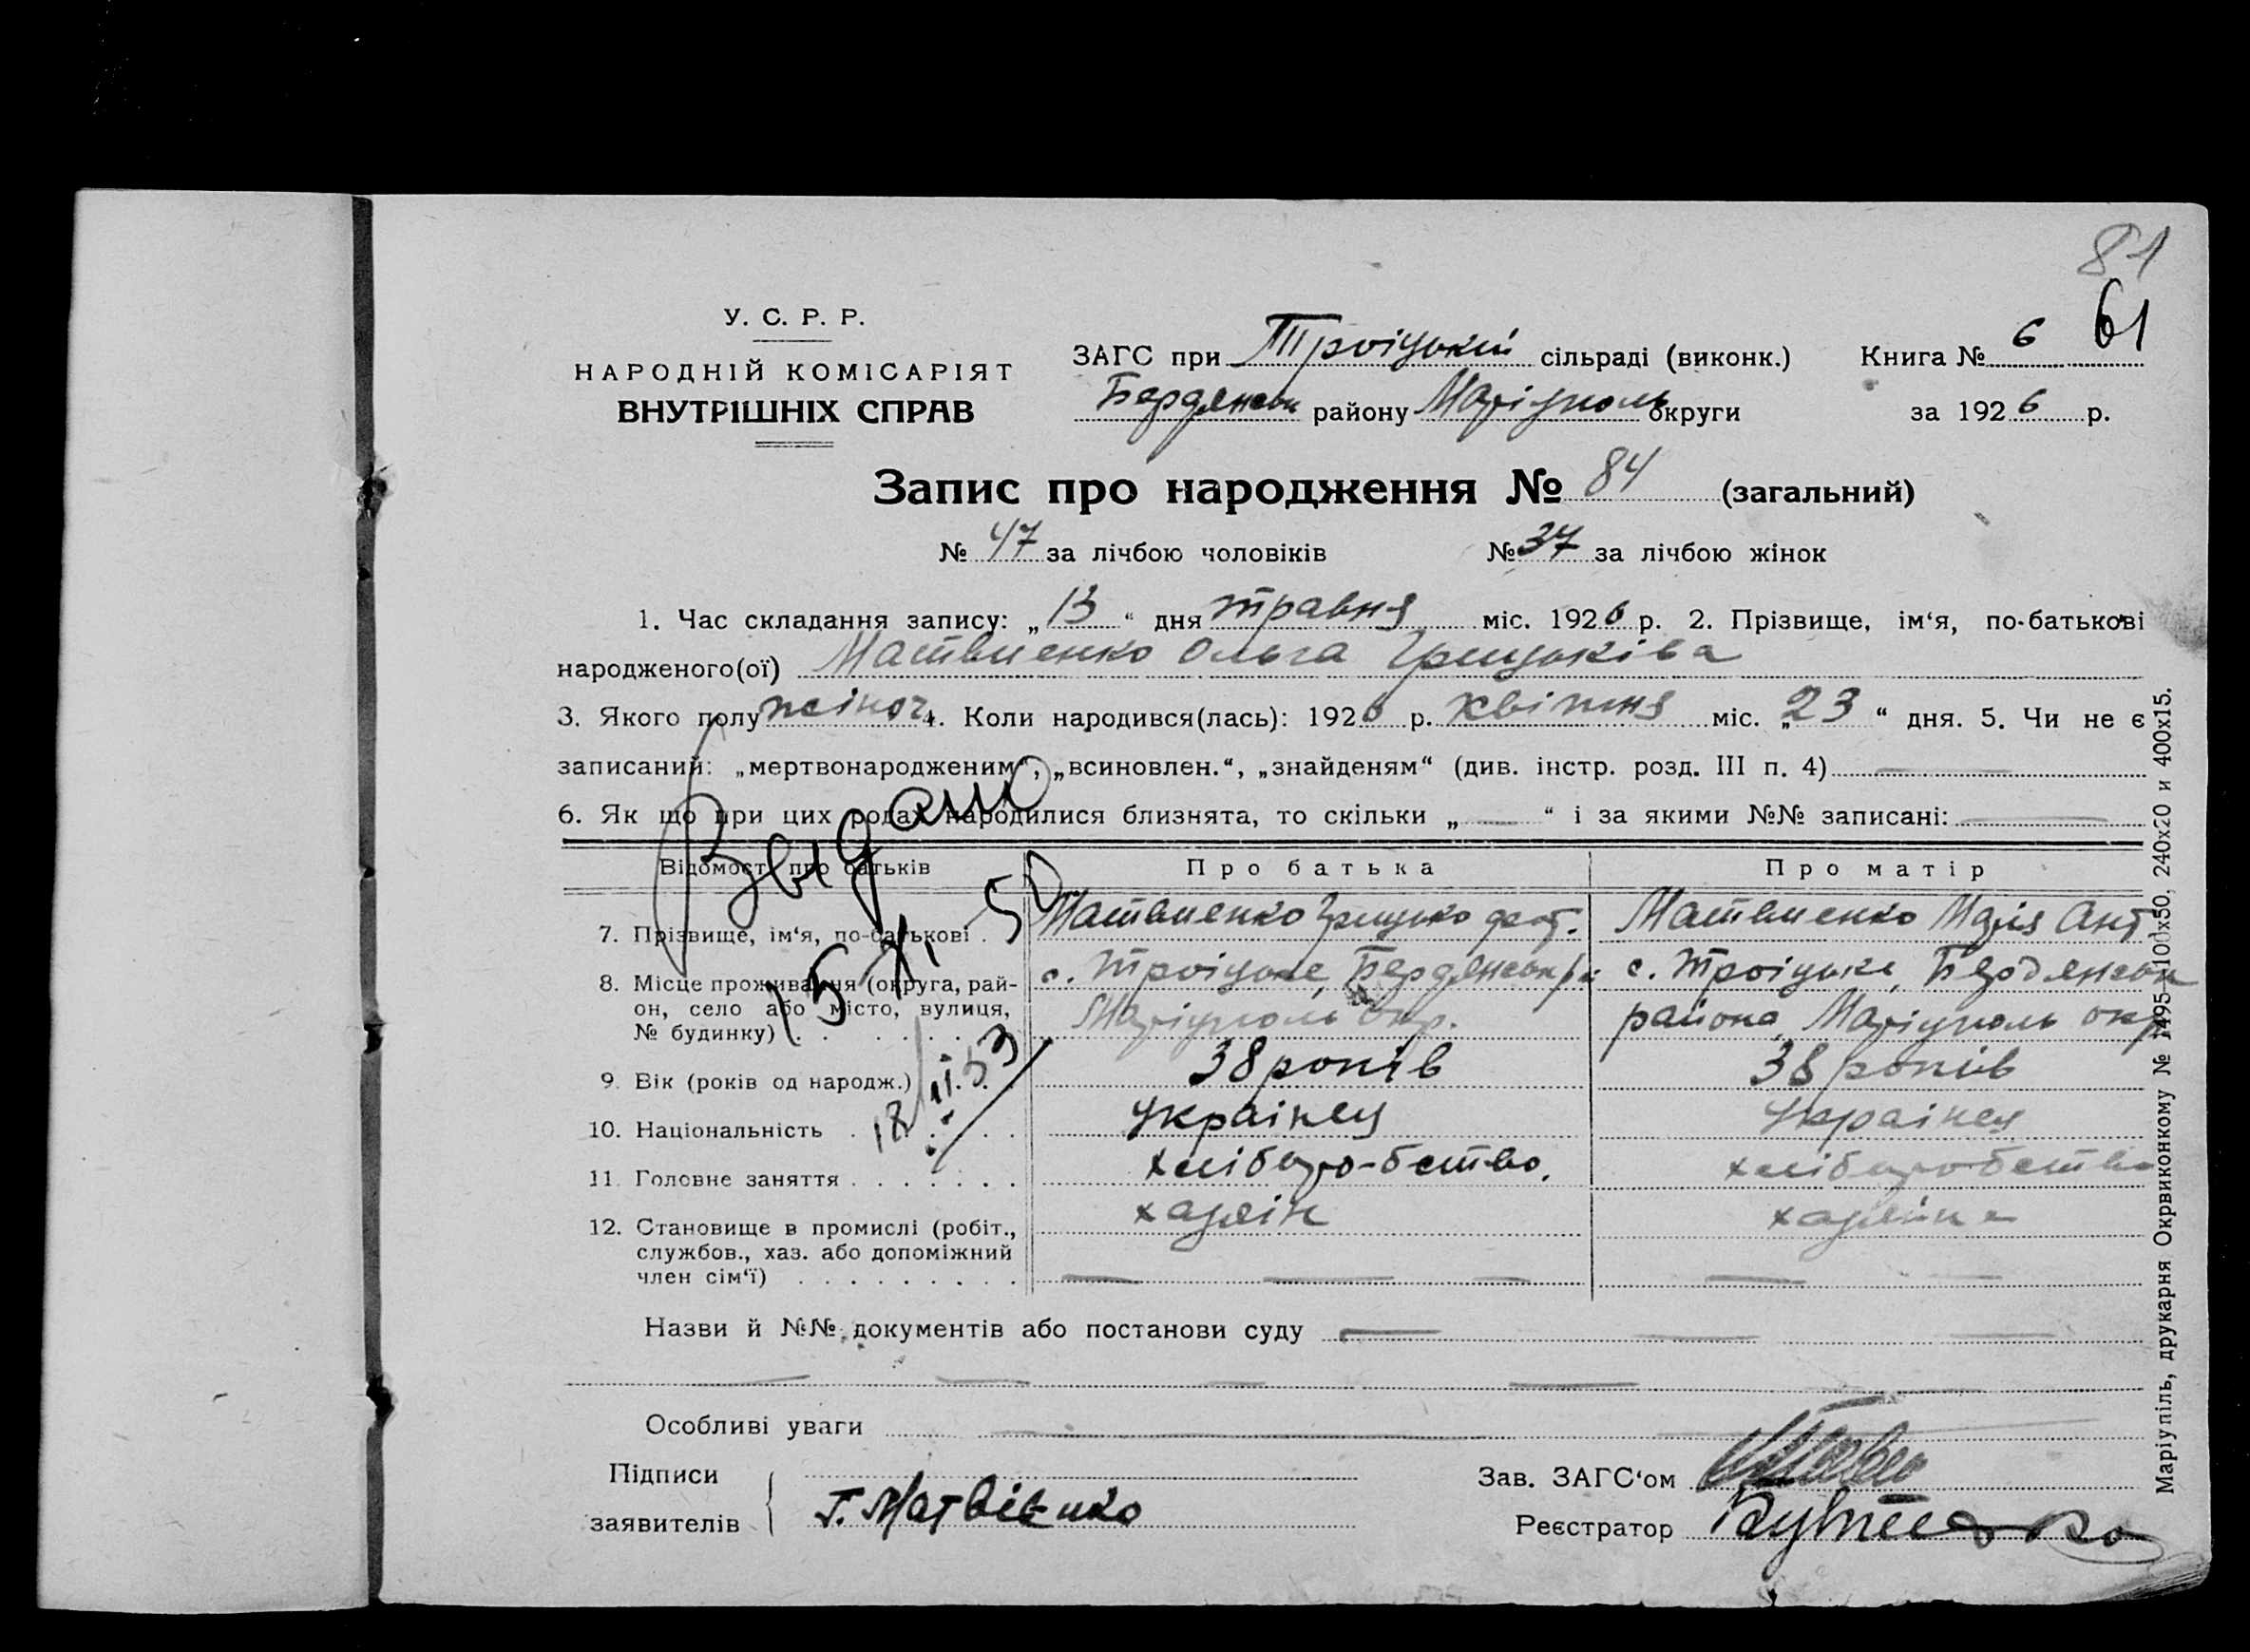 81
61
У. С. Р. Р.
НАРОДНІЙ КОМІСАРІЯТ
ВНУТРІШНІХ СПРАВ
ЗАГС при Троіцькій сільраді (виконк.) Книга № 6
Бердянськ району Маріуполь округи за 1926 р.
Запис про народження № 84 (загальний)
№ 47 за лічбою чоловіків № 37 за лічбою жінок
1. Час складання запису: „13“ дня травня міс. 1926 р. 2. Прізвище, ім‘я, по-батькові
народженого(ої) Матвиенко Ольга Грицьківа
3. Якого полу жіноч. 4. Коли народився(лась): 1926 р. квітня міс. „23“ дня. 5. Чи не є
записаний: „мертвонародженим“, „всиновлен.“, „знайденям“ (див. інстр. розд. III п. 4)
6. Як що при цих родах народилися близнята, то скільки „ — “ і за якими №№ записані: —
Выдано
15 XI 50
18/II.53
Відомості про батьків Про батька Про матір
7. Прізвище, ім‘я, по-батькові . Матвиенко Грицько Матвиенко Марія Ант
8. Місце проживання (округа, рай- с. Троіцьке, Бердянськ с. Троіцьке, Бердянськ
он, село або місто, вулиця, Маріуполь окр. района, Маріуполь окр
№ будинку)
9. Вік (років од народж.) 38 років 38 років
10. Національність Украінец Украінец
11. Головне заняття хлібаро-бство. хлібаробство
12. Становище в промислі (робіт., хазяін хазяйка
службов., хаз. або допоміжний
член сім‘ї)
Назви й №№ документів або постанови суду
Особливі уваги
Підписи Зав. ЗАГС‘ом
заявителів Г. Матвіенко Реєстратор
Маріупіль, друкарня Окрвиконкому № 1495—100х50, 240х20 и 400х15.